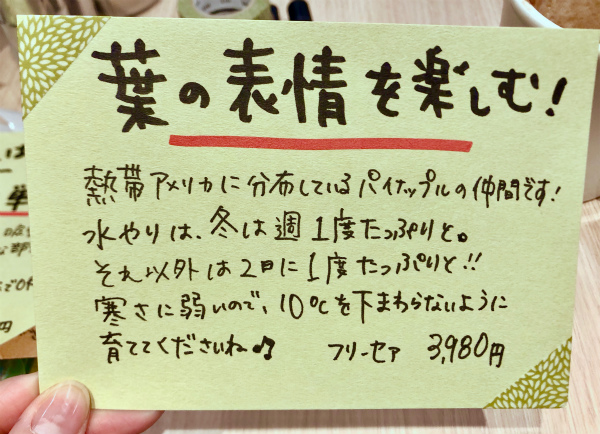 葉の表情を楽しむ!
熱帯アメリカに分布しているパイナップルの仲間です!
水やりは、冬は週1度たっぷりと。
それ以外は2日に1度たっぷりと!!
寒さに弱いので、10℃を下まわらないように
育ててくださいね♫
フリーセア 3,980円
は
円